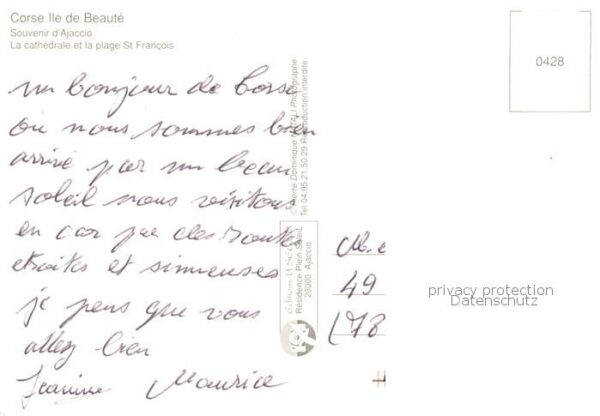 Corse Ile de Beauté
Souvenir d'Ajaccio
La cathédrale et la plage St François
0428
un bonjour de Corse
où nous sommes bien
arrivé par un beau
soleil nous visitons
en car par des routes
etroites et sinueuses
je pens que vous
allez bien
Jeanine Maurice
Pierre Dominique Photographe
Tel 04.95.21.50.29 Reproduction interdite
Editions
Résidence Plein Soleil
20000 Ajaccio
M. e
49
(78
privacy protection
Datenschutz